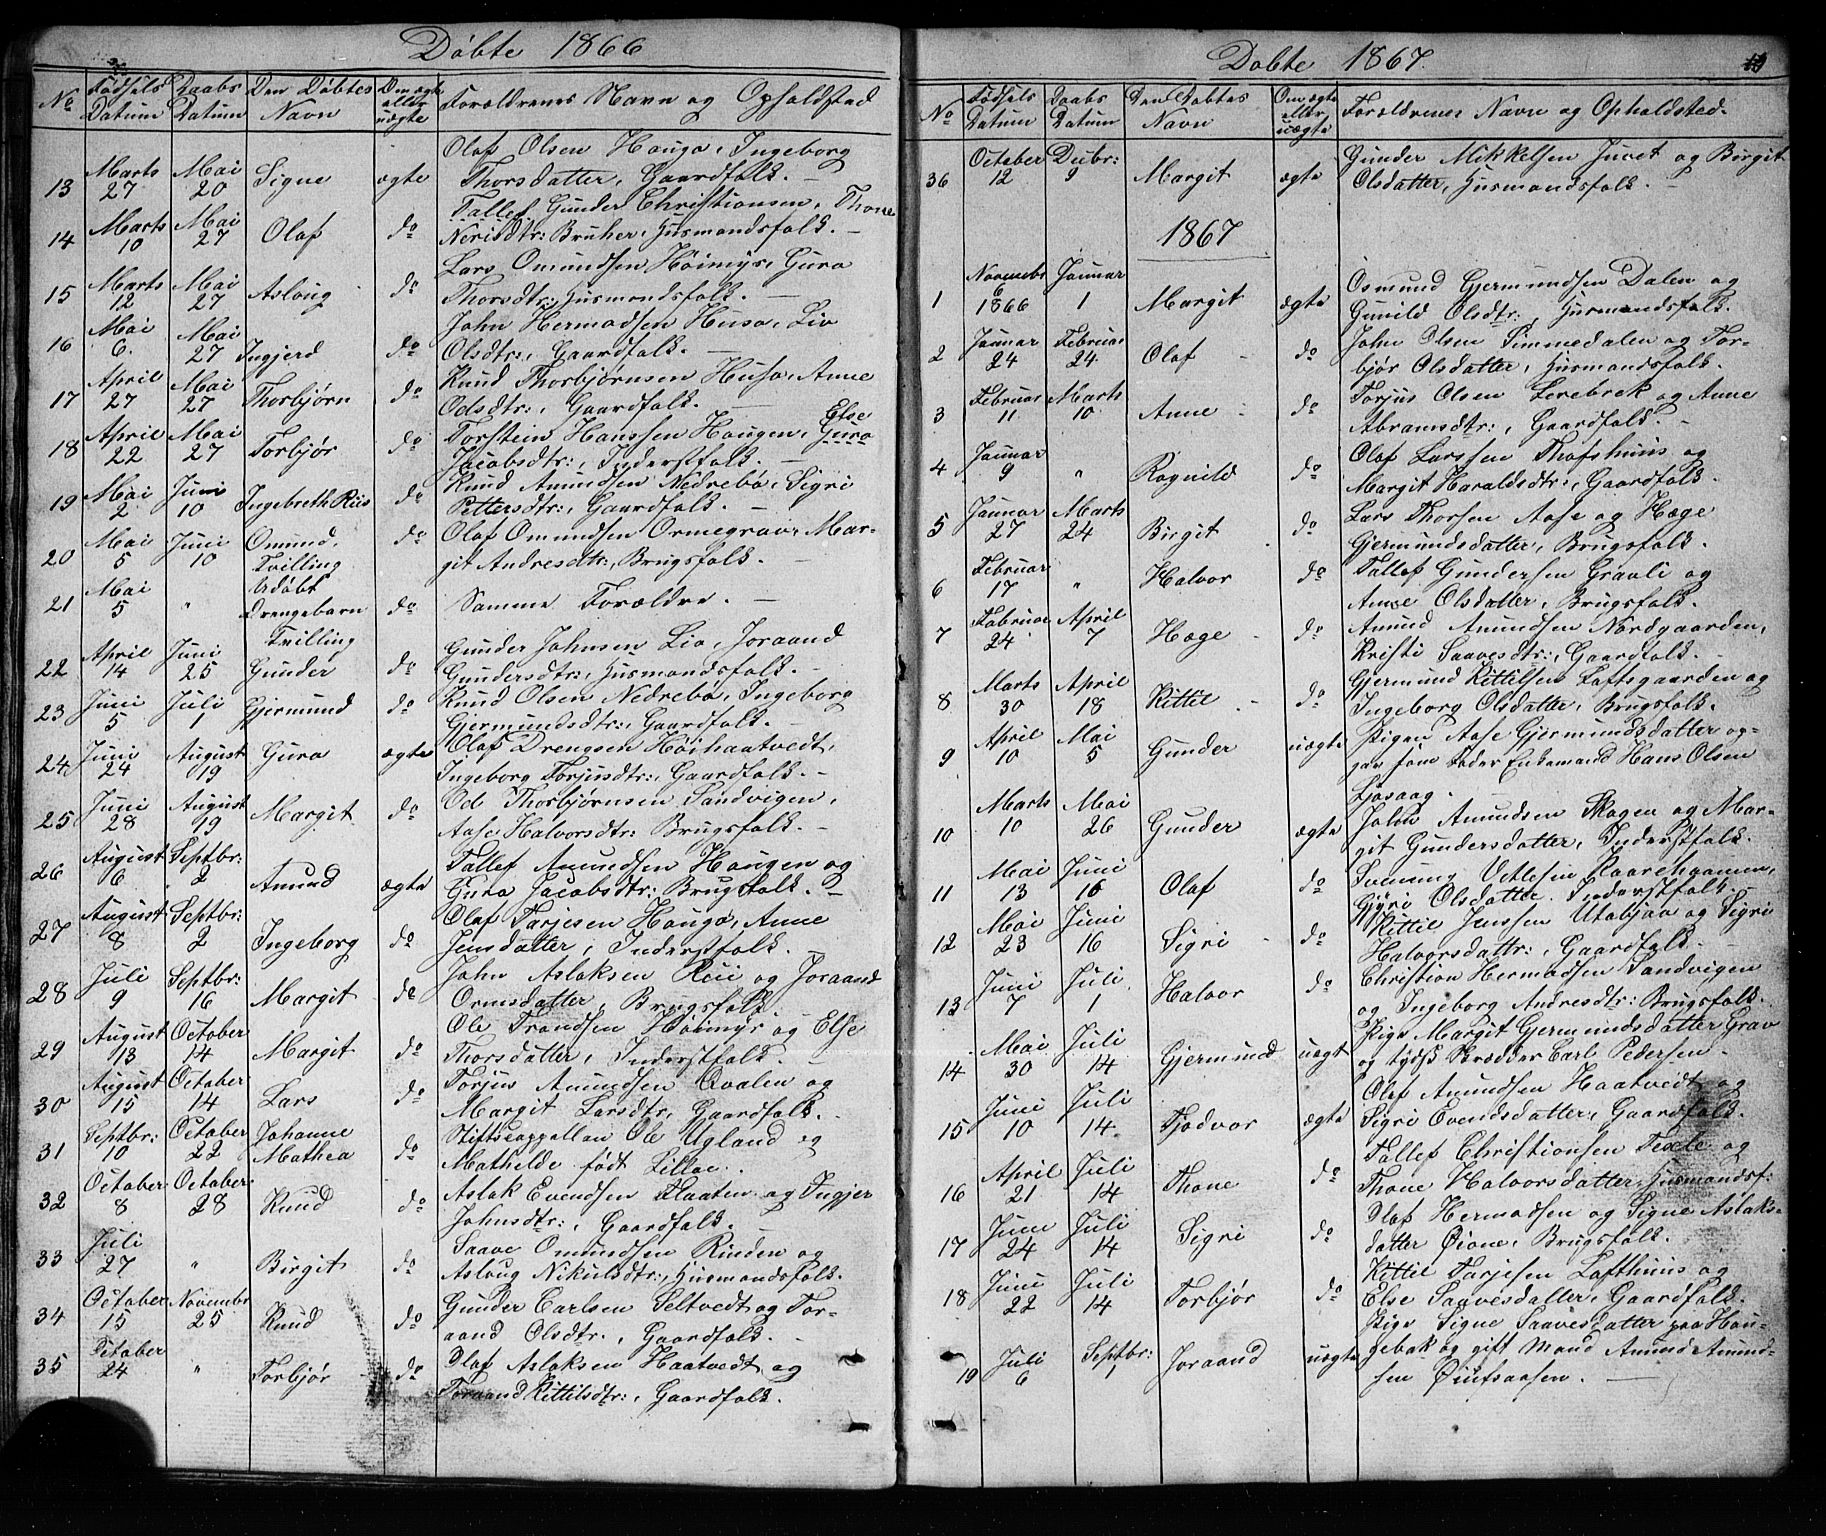 Døbte 1866
No Fødsels Datum Daabs Datum Den Døbtes Navn Om ægte eller uægte Forældrenes Navn og Opholdsted
13 Marts 27 Mai 20 Signe ægte Olaf Olsen Hauga, Ingeborg
Thorsdatter, Gaardfolk. –
14 Marts 10 Mai 27 Olaf do Tallef Gunder Christiansen, Thone
Nerisdtr: Bruher, Husmandsfolk. –
15 Marts 12 Mai 27 Asloug do Lars Omundsen Høimyr, Guro
Thorsdtr: Husmandsfolk. –
16 Mai 6. Mai 27 Ingjerd do John Hermodsen Huso, Liv
Olsdtr:, Gaardfolk. –
17 April 27 Mai 27 Thorbjørn do Knud Thorbjørnsen Huso, Anne
Odsdtr:, Gaardfolk. –
18 April 22 Mai 27 Torbjør do Torstein Hanssen Haugen, Else Guro
Jacobsdtr:, Inderstfolk. –
19 Mai 2 Juni 10 Ingebreth Riis do Knud Amundsen Nedrebø, Sigri
Pettersdtr:, Gaardfolk. –
20 Mai 5 Juni 10 Omund, Tvilling do Olaf Omundsen Ormegrav, Mar-
git Andresdtr:, Brugsfolk. –
21 Mai 5 " Udøbt Drengebarn Tvilling do Samme Forældre. –
22 April 14 Juni 25 Gunder do Gunder Johnsen Lio, Joraand
Gundersdtr:, Husmandsfolk. –
23 Juni 5 Juli 1 Gjermund do Knud Olsen Nedrebø, Ingeborg
Gjermundsdtr:, Gaardfolk. –
24 Juni 24 August 19 Guro ægte Olaf Drengsen Høihaatvedt,
Ingeborg Torjusdtr:, Gaardfolk. –
25 Juni 28 August 19 Margit do Od Thorbjørnsen Sandvigen,
Aase Halvorsdtr: Brugsfolk. –
26 August 6 Septbr: 2 Amund ægte Tallef Amundsen Haugen og
Guro Jacobsdtr: Brugsfolk. –
27 August 8 Septbr: 2 Ingeborg do Olaf Tarjesen Haugo, Anne
Jensdatter, Inderstfolk. –
28 Juli 9 Septbr: 16 Margit do John Aslaksen Rui og Joraand
Ormsdatter, Brugsfolk.
29 August 13 October 14 Margit do Ole Trondsen Høimyr og Else
Thorsdatter, Inderstfolk. –
30 August 15 October 14 Lars do Torjus Amundsen Qvalen og
Margit Larsdtr, Gaardfolk. –
31 Septbr: 10 October 22 Johanne Mathea do Stiftscappellan Ole Ugland og
Mathilde født Lilloe.
32 October 8 October 28 Knud do Aslak Evendsen Flaaten og Ingjer
Johnsdtr:, Gaardfolk. –
33 Juli 27 " Birgit do Saave Omundsen Rinden og
Asloug Nikulsdtr:, Husmandsfolk.
34 October 15 November 25 Knud do Gunder Carlsen Seltvedt og Tor-
aand Olsdtr., Gaardfolk. –
35 October 24 " Torbjør do Olaf Aslaksen Haatvedt og
Toraand Kittilsdtr:, Gaardfolk.
Døbte 1867.
19
No Fødsels Datum Daabs Datum Den Døbtes Navn Om ægte eller uægte Forældrenes Navn og Opholdsted.
36 October 12 Decbr: 9 Margit ægte Gunder Mikkelsen Juvet og Birgit
Olsdatter, Husmandsfolk. –
1867
1 Novembr 6 1866 Januar 1 Margit ægte Osmund Gjermundsen Dalen og
Gunild Olsdtr:, Husmandsfolk.
2 Januar 24 Februar 24 Olaf do John Olsen Simmedalen og Tor-
bjør Olsdatter, Husmandsfolk.
3 Februar 11 Marts 10 Anne do Torjus Olsen Lerebrek og Anne
Abramsdtr:, Gaardfolk. –
4 Januar 9 " Rognild do Olaf Larssen Thofshuus og
Margit Haraldsdtr:, Gaardfolk.
5 Januar 27 Marts 24 Birgit do Lars Thorsen Aase og Hæge
Gjermundsdatter, Brugsfolk.
6 Februar 17 " Halvor do Tallef Gundersen Graali og
Anne Olsdatter, Brugsfolk.
7 Februar 24 April 7 Hæge do Amund Amundsen Nordgaarden,
Kristi Saavesdtr:, Gaardfolk.
8 Marts 30 April 18 Kittil do Gjermund Kittilsen Loftsgaarden og
Ingeborg Olsdatter, Brugsfolk.
9 April 10 Mai 5 Gunder uægte Pigen Aase Gjermundsdatter op-
gav som Fader Enkemand Hans Olsen
Ljosaag.
10 Marts 10 Mai 26 Gunder ægte John Amundsen Skogen og Mar-
git Gundersdatter, Inderstfolk.
11 Mai 13 Juni 16 Olaf do Svenning Vetlesen Kaarehgamen,
Gyri Olsdatter. Inderstfolk.
12 Mai 23 Juni 16 Sigri do Kittil Jenssen Utabjaa og Sigri
Halvorsdattr:, Gaardfolk. –
13 Juni 7 Juli 1 Halvor do Christian Hermodsen Sandvigen
og Ingeborg Andresdtr: Brugsfolk.
14 Mai 30 Juli 14 Gjermund uægt Pige Margit Gjermundsdatter Grav
og tydsk Skrædder Carl Pedersen.
15 Juni 10 Juli 14. Tjodvor ægte Olaf Amundsen Haatvedt og
Sigri Evendsdatter, Gaardfolk.
16 April 21 Juli 14 Thone do Tallef Christiansen Tveite og
Thone Halvorsdatter, Husmandsf:
17 Juni 24 Juli 14 Sigri do Olaf Hermodsen og Signe Aslaks-
datter Øione, Brugsfolk.
18 Juni 22 Juli 14 Torbjør do Kittil Tarjesen Lofthuus og
Else Saavesdatter, Gaardfolk.
19 Juli 6 Septbr: 1 Joraand uægte Pige Signe Saavesdatter paa Hau-
gebak og gift Mand Amund Amund-
sen Øiufsaasen. –